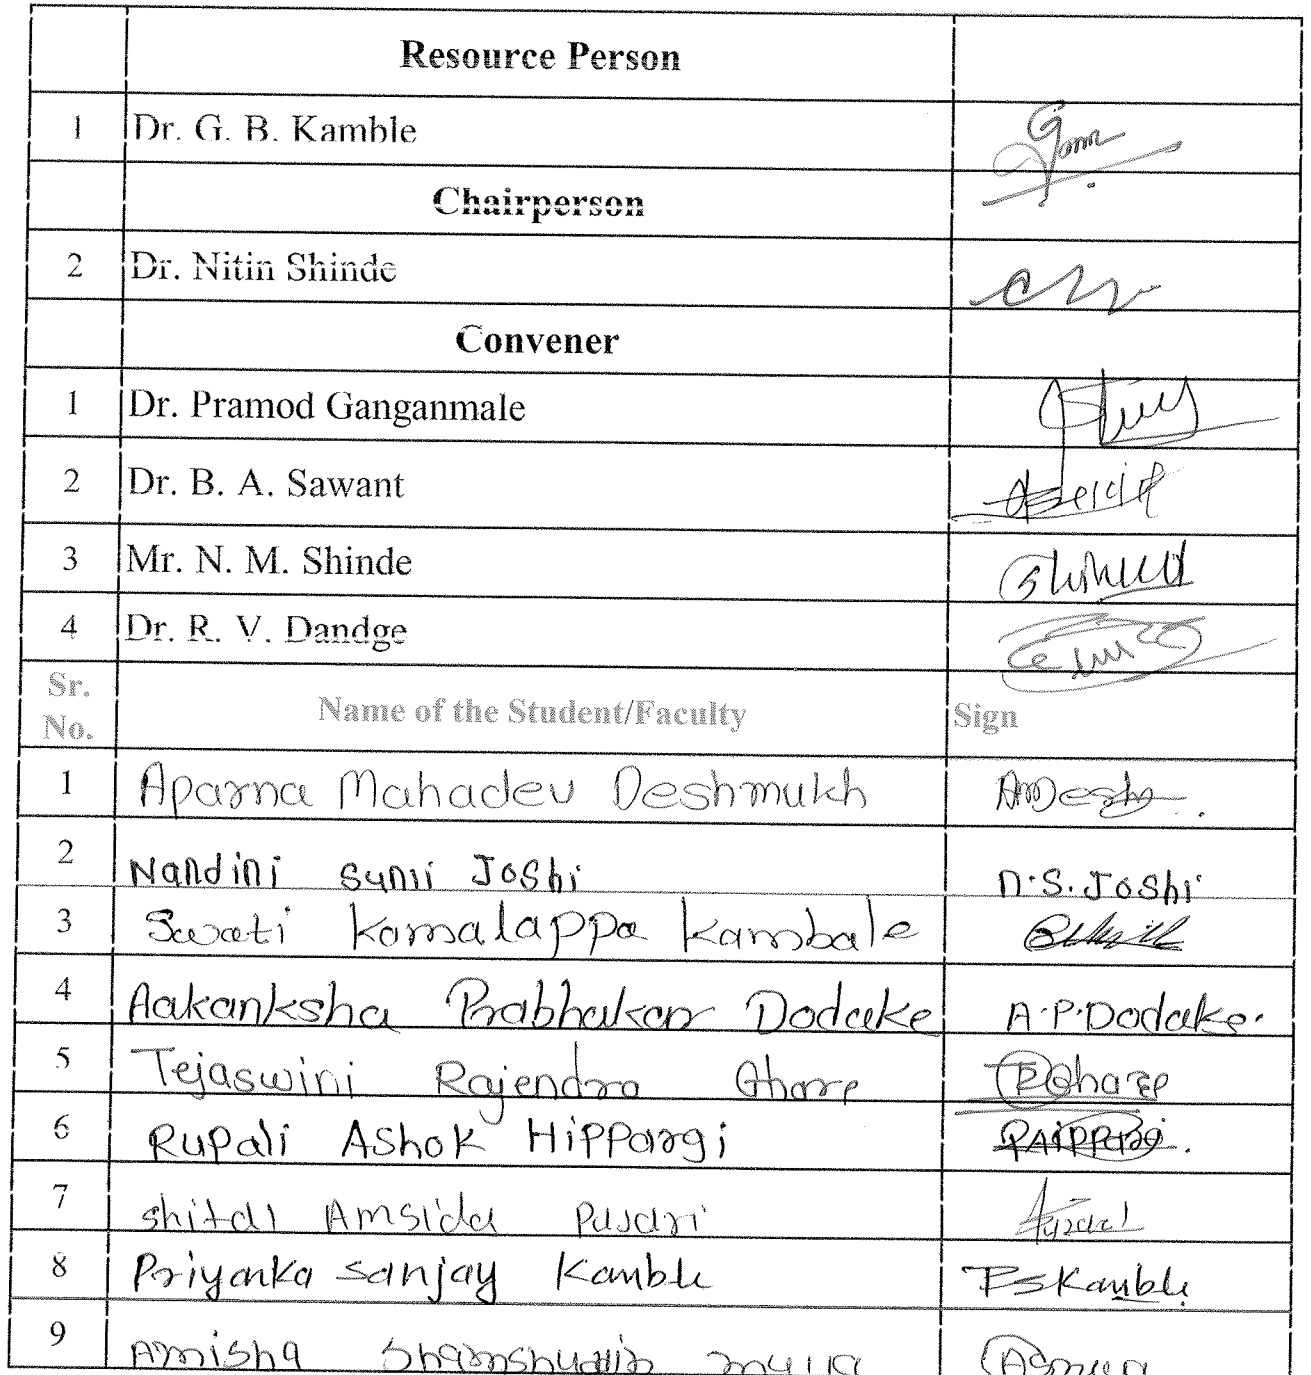 Resource Person
1 Dr. G. B. Kamble
Chairperson
2 Dr. Nitin Shinde
Convener
1 Dr. Pramod Ganganmale
2 Dr. B. A. Sawant
3 Mr. N. M. Shinde
4 Dr. R. V. Dandge
Sr. No. Name of the Student/Faculty Sign
1 Aparna Mahadev Deshmukh AMDesh
2 Nandini Sunil Joshi N.S.Joshi
3 Swati Kamalappa Kambale
4 Aakanksha Prabhakar Dodake A.P.Dodake.
5 Tejaswini Rajendra Ghare TRGhare
6 Rupali Ashok Hippargi RAHippargi.
7 Shital Amsida Pujari
8 Priyanka Sanjay Kamble PSKamble
9 Amisha Shamshuddin Mulla